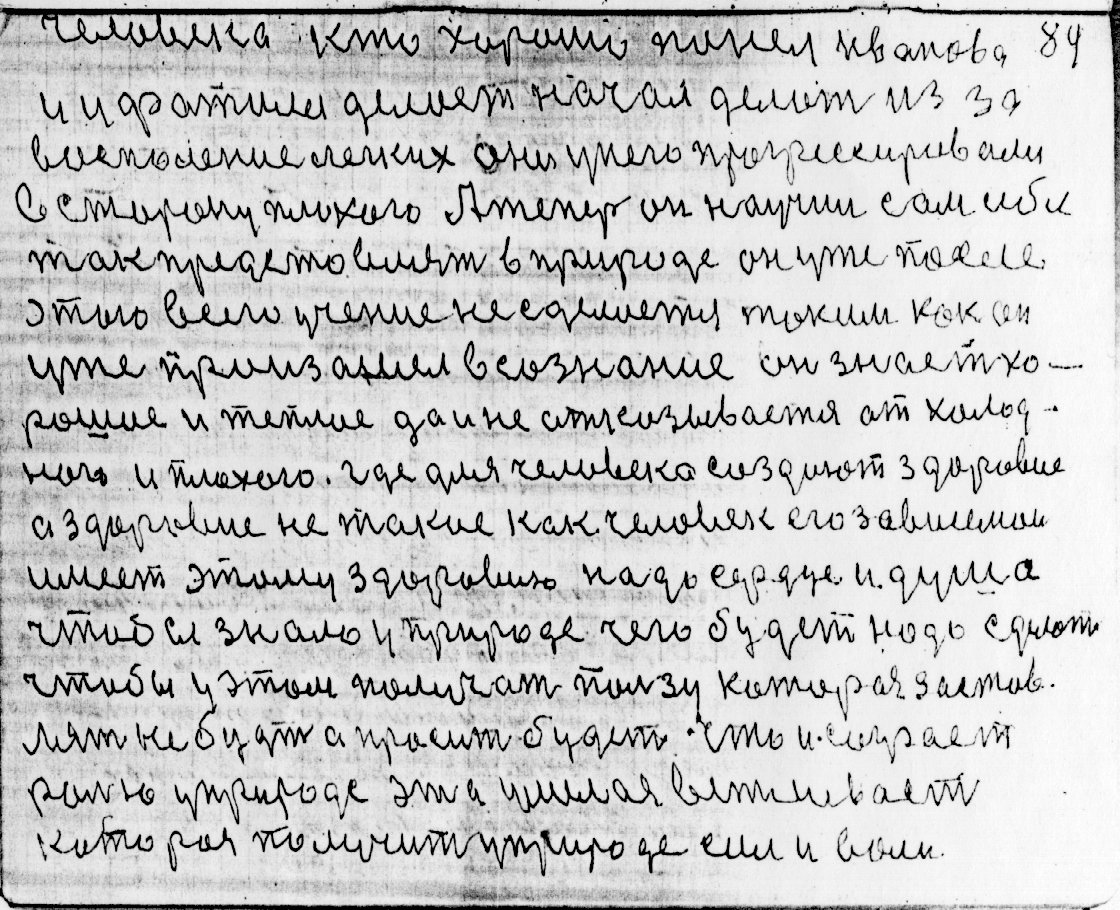 человека кто хорошо понел иванова 84
и ухватила делает начал делат из за
воспаление легких они унего прогрессировали
В сторону плохого Атепер он научил сам себя
так представлят в природе он уже после
этого всего учение не сделается таким как он
уже произашел в сознание он знает хо—
рошое и теплое да и не отказывается от холод-
ного и плохого. где для человека создают здоровие
а здоровие не такие как человек его зависемои
имеет этому здоровию надо сердце и душа
чтоб ел знало у природе чего будет надо сделат
чтобы у этом получат ползу которая застав.
лят не будт а просит будет. что и. сыграет
ролю у природе эта умелая
которая получит у природе сил и воли.